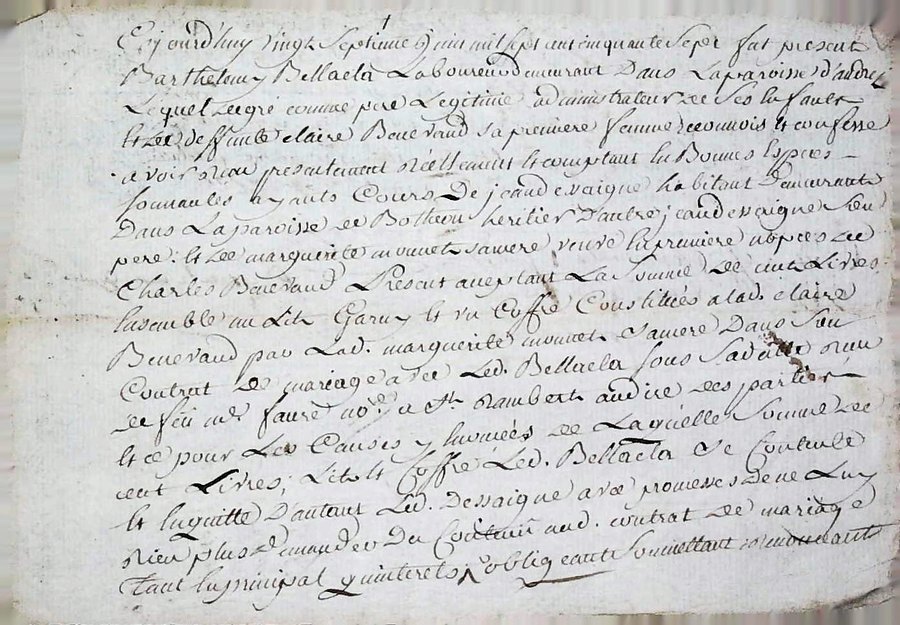 Cejourd'huy vingt septieme Juin mil sept cent cinquante sept fut present
Barthelemy Bellacla Laboureur demeurant Dans La paroisse d'andre
Lequel de gré comme pere Legitime administrateur de ses Enfants
Et de deffunte claire Bonevaud sa premiere femme reconnois et confesse
avoir Reçu presentement Réellement Et comptant En Bonnes Espces
sonnantes ayants Cours De jean dessaigne habitant demeurant
Dans La paroisse de Bothéon heritier D'autre jean dessaigne Son
pere : Et de marguerite mounet sa mere veuve En premiere nopces de
Charles Bonevaud Present aceptant La Somme De cent Livres
Ensemble un Lit Garny Et un Coffre Constitués a lad. claire
Bonevaud par Lad. marguerite mounet sa mere Dans Son
Contrat de mariage avec Led. Bellacla sous sa datte Reçu
de feu me faure nore a St Rambert au dire des parties
Et ce pour Les Causes y Enoncées De Laquelle Somme de
cent Livres, Lit Et Coffre Led. Bellacla Se Contente
Et En quitte D'autant Led. Dessaigne avec promesses De ne Luy
Rien plus Demander Du Contenu aud. contrat de mariage
Tant En principal qu'interets, obligeant Soumettant renonceant